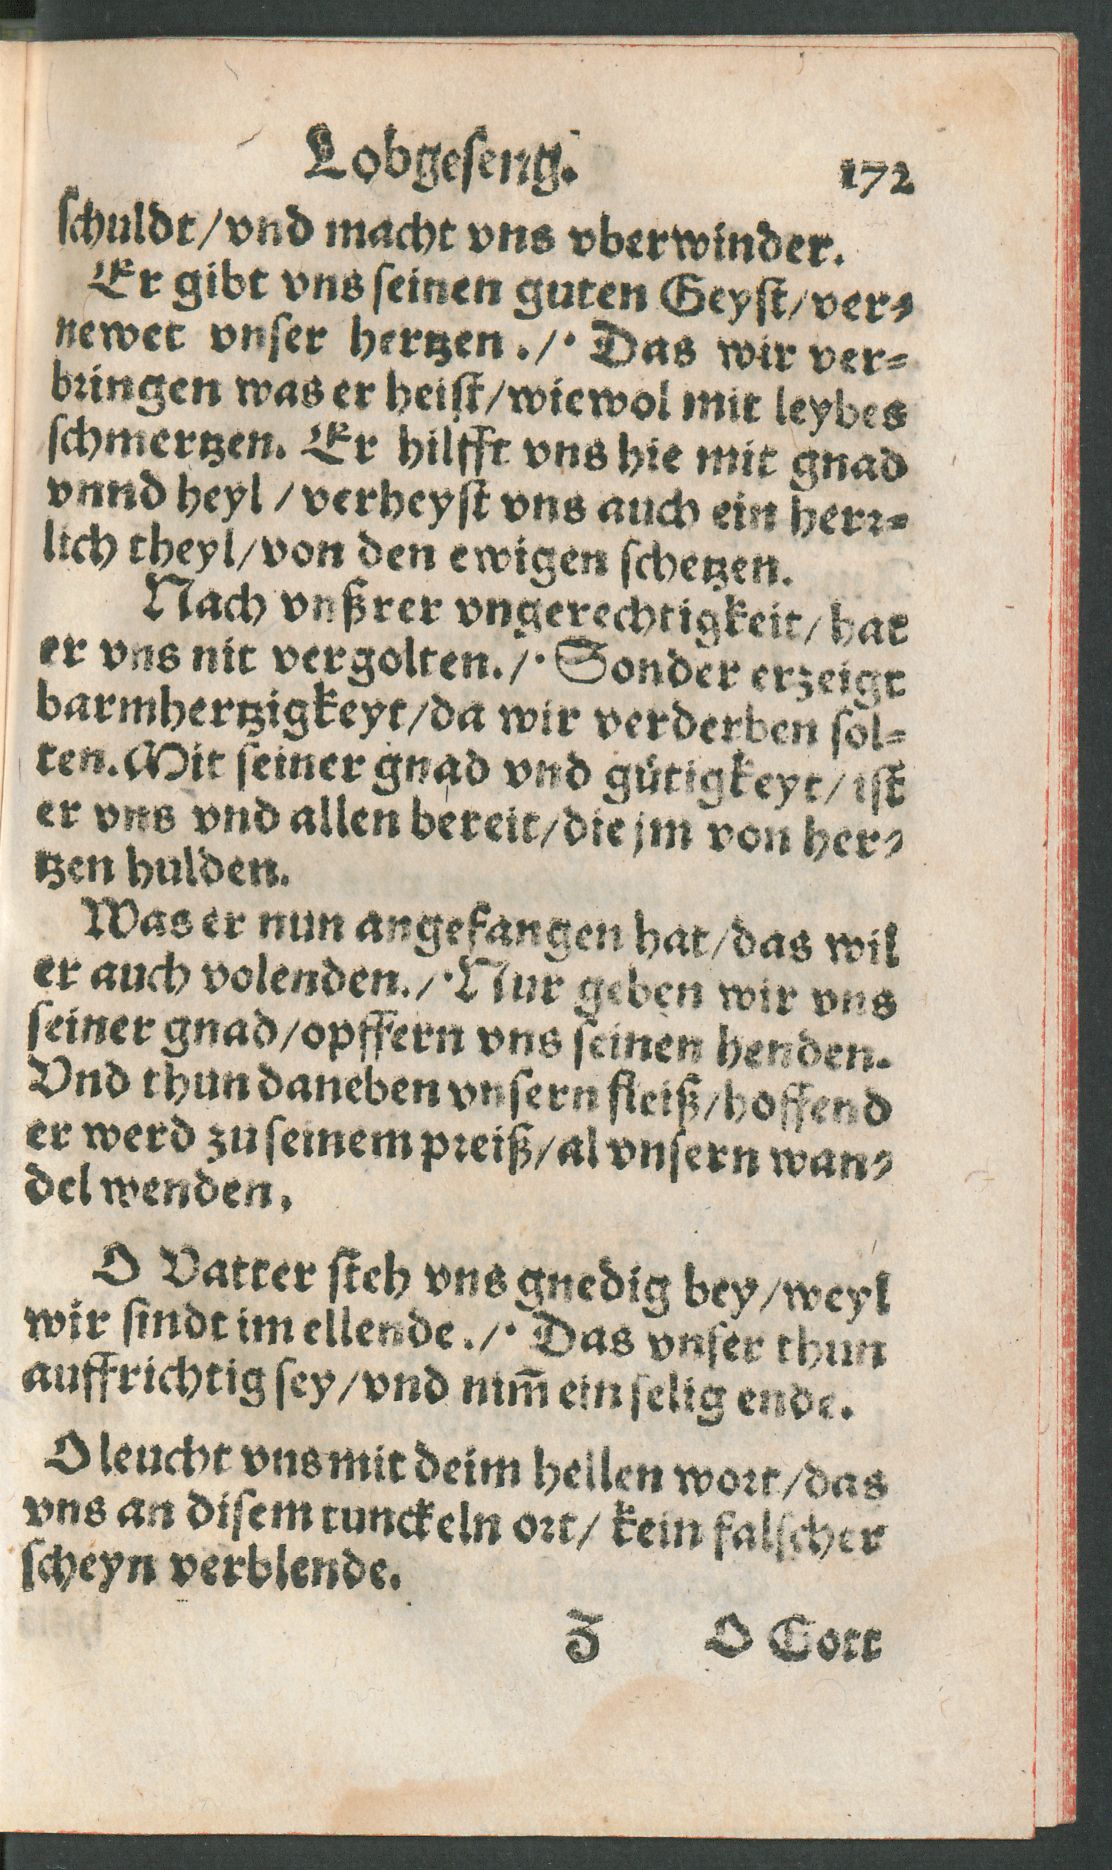 Lobgeseng. 172
schuldt/vnd macht vns vberwinder.
Er gibt vns seinen guten Geyst/ver⸗
newet vnser hertzen./· Das wir ver⸗
bringen was er heist/wiewol mit leybes
schmertzen. Er hilfft vns hie mit gnad
vnnd heyl/verheyst vns auch ein herr⸗
lich theyl/von den ewigen schetzen.
Nach vnßrer vngerechtigkeit/hat
er vns nit vergolten./· Sonder erzeigt
barmhertzigkeyt/da wir verderben sol⸗
ten. Mit seiner gnad vnd gütigkeyt/ist
er vns vnd allen bereit/die jm von her⸗
tzen hulden.
Was er nun angefangen hat/das wil
er auch volenden./· Nur geben wir vns
seiner gnad/opffern vns seinen henden.
Vnd thun daneben vnsern fleiß/hoffend
er werd zu seinem preiß/al vnsern wan⸗
del wenden.
O Vatter steh vns gnedig bey/weyl
wir sindt im ellende./· Das vnser thun
auffrichtig sey/vnd nim̃ ein selig ende.
O leucht vns mit deim hellen wort/das
vns an disem tunckeln ort/kein falscher
scheyn verblende.
Z O Gott